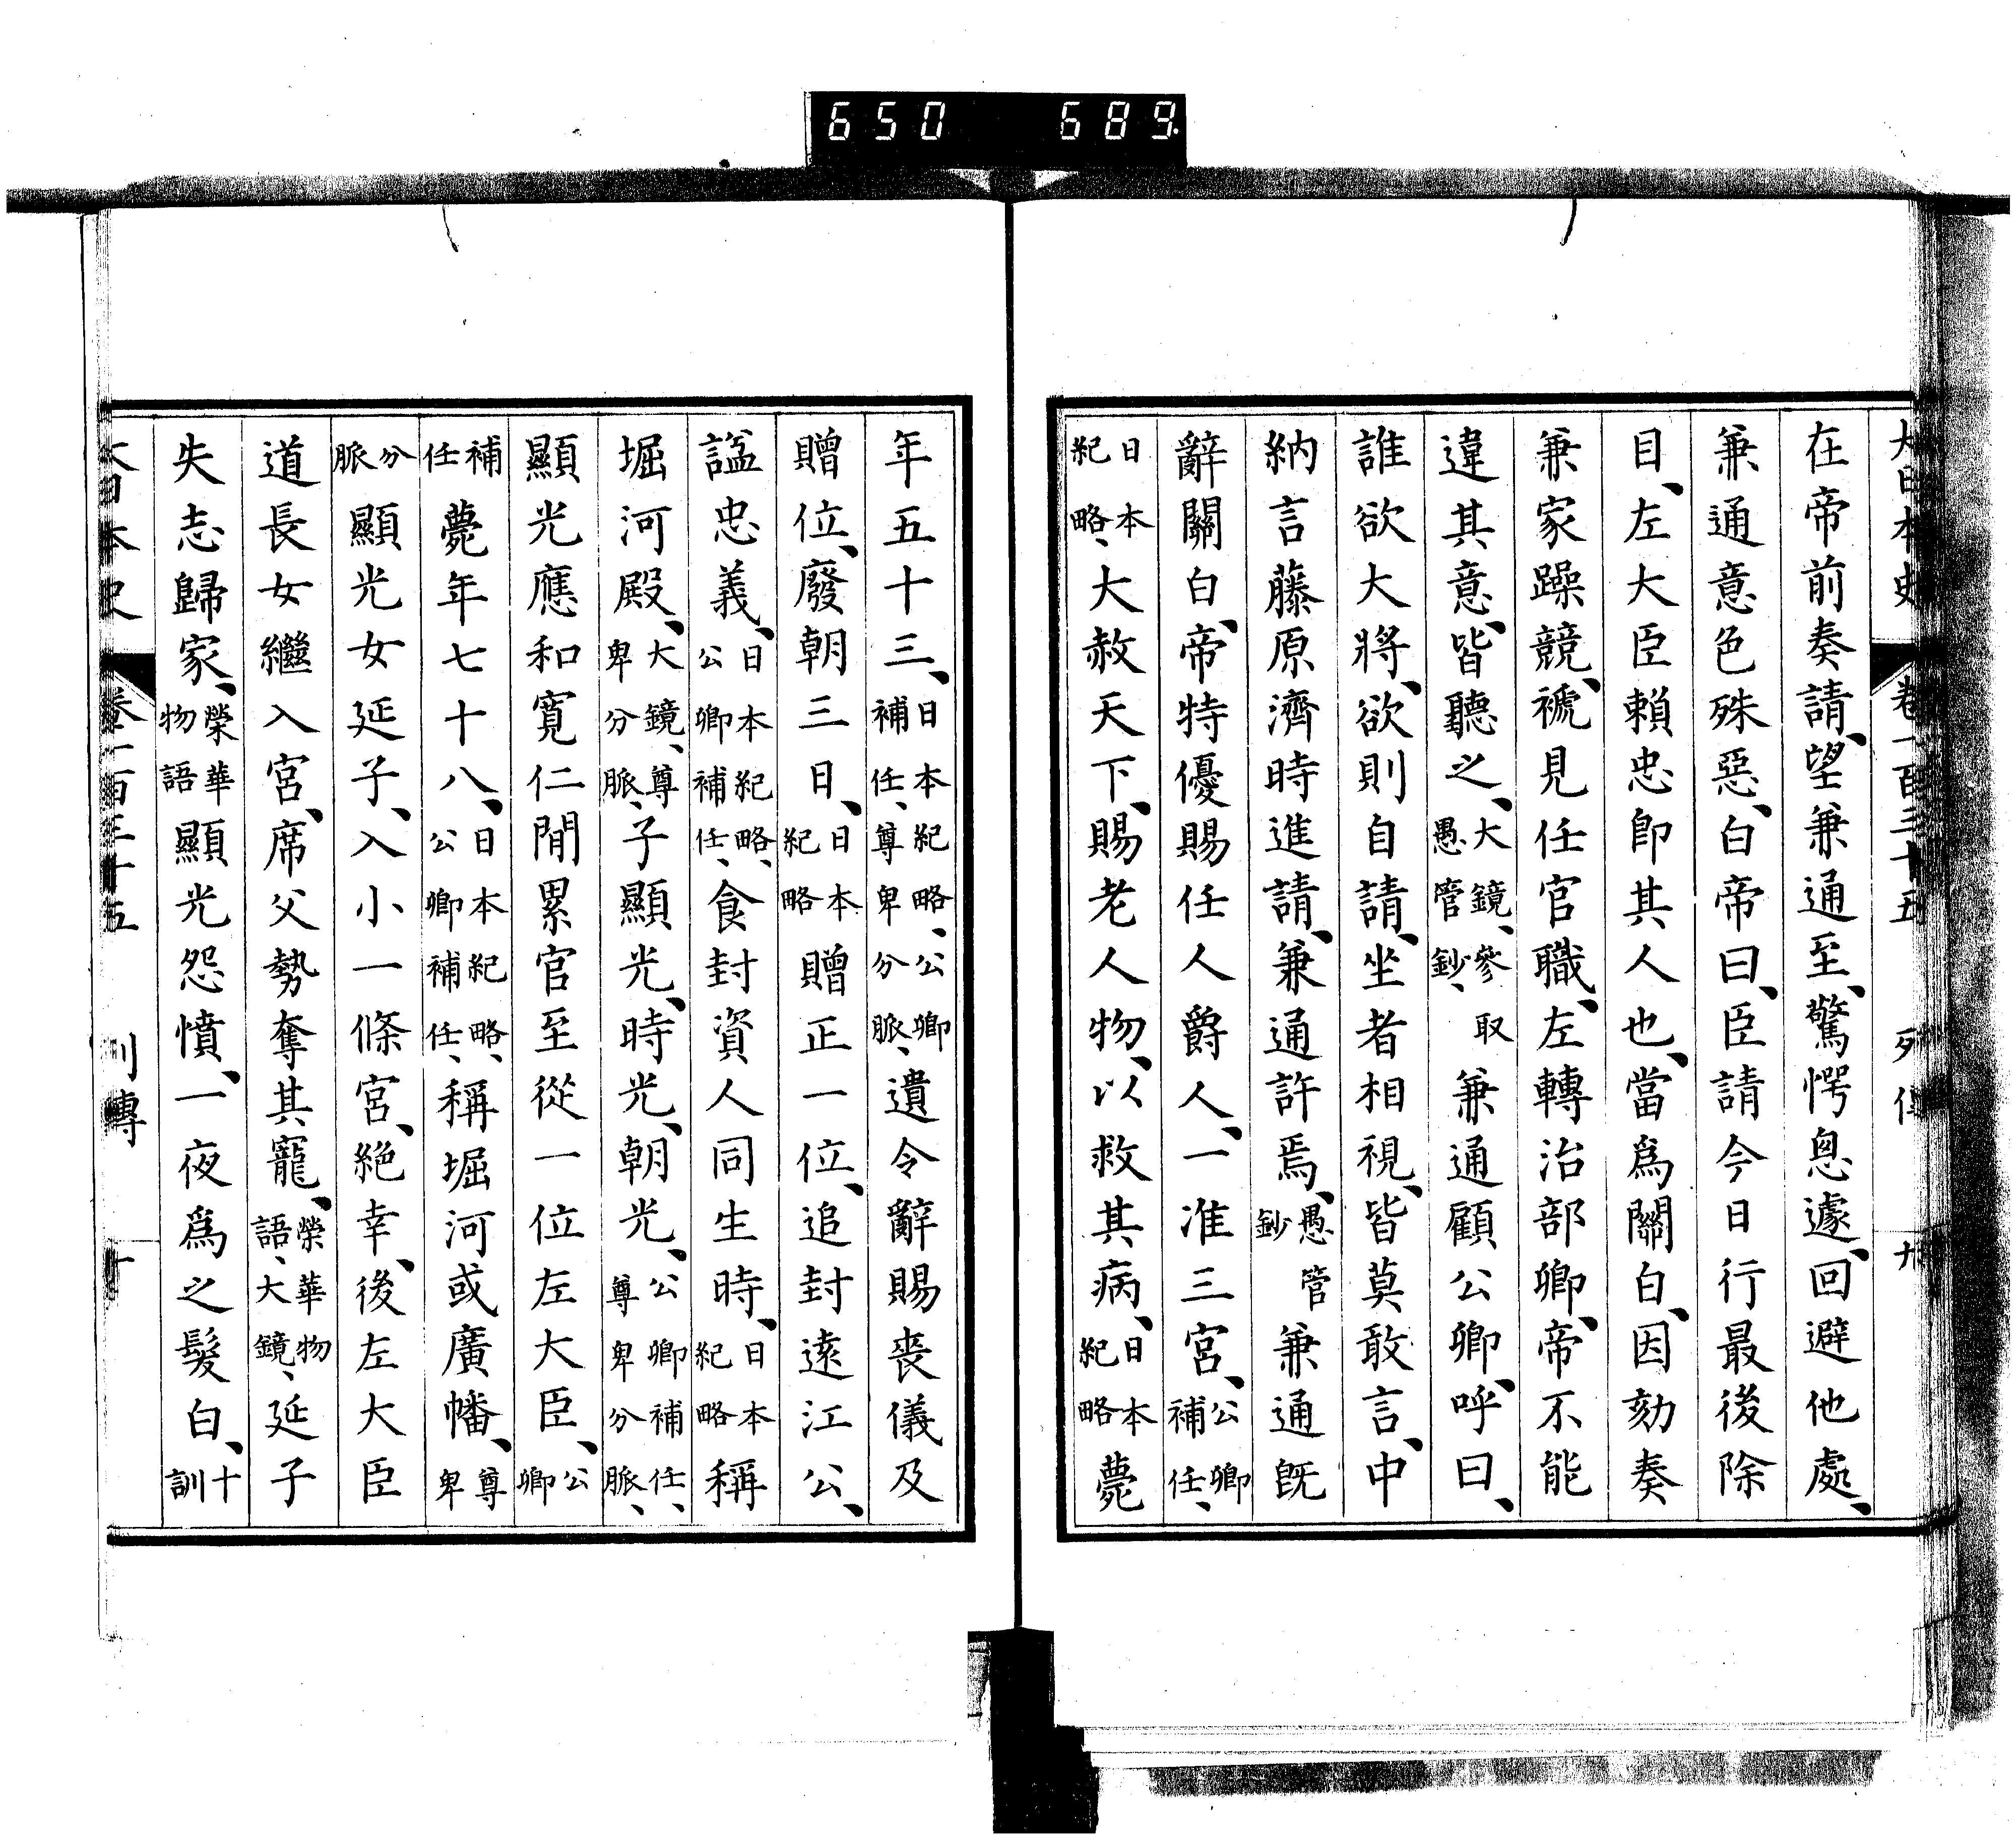 650 689
大日本史 卷一百三十五 列傳 九
在帝前奏請、望兼通至、驚愕恖遽、回避他處、
兼通意色殊惡、白帝曰、臣請今日行最後除
目、左大臣賴忠卽其人也、當爲關白、因劾奏
兼家躁競、褫見任官職、左轉治部卿、帝不能
違其意、皆聽之、大鏡、參取愚管鈔、兼通顧公卿、呼曰、
誰欲大將、欲則自請、坐者相視、皆莫敢言、中
納言藤原濟時進請、兼通許焉、愚管鈔兼通旣
辭關白、帝特優賜任人爵人、一准三宮、公卿補任、
日本紀略、大赦天下、賜老人物、以救其病、日本紀略薨
年五十三、日本紀略、公卿補任、尊卑分脈、遺令辭賜喪儀及
贈位、廢朝三日、日本紀略贈正一位、追封遠江公、
諡忠義、日本紀略、公卿補任、食封資人同生時、日本紀略稱
堀河殿、大鏡、尊卑分脈、子顯光、時光、朝光、公卿補任、尊卑分脈、
顯光應和寬仁閒累官至從一位左大臣、公卿
補任薨年七十八、日本紀略、公卿補任、稱堀河或廣幡、尊卑
分脈顯光女延子、入小一條宮、絕幸、後左大臣
道長女繼入宮、席父勢奪其寵、榮華物語、大鏡、延子
失志歸家、榮華物語顯光怨憤、一夜爲之髮白、十訓
大日本史 卷一百三十五 列傳 十